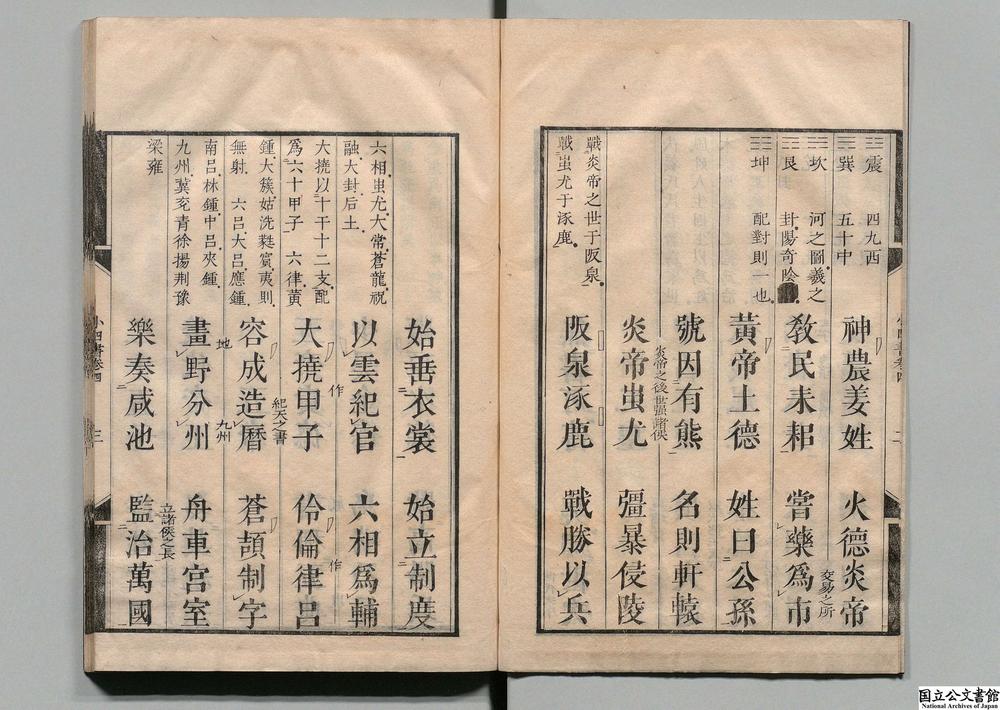 ☳震 四九西
☴巽 五十中
☵坎 河之圖羲之
☶艮 卦陽奇陰
☷坤 配對則一也
戰炎帝之世于阪泉
戰蚩尤于涿鹿
神農姜姓 火德炎帝
教民耒耜 嘗藥爲市
交易之所
黃帝土德 姓曰公孫
號因有熊 名則軒轅
炎帝之後世强諸侯
炎帝蚩尤 彊暴侵陵
阪泉涿鹿 戰勝以兵
小四書卷四 二
六相蚩尤大常蒼龍祝
融大封后土
大撓以十干十二支配
爲六十甲子 六律黃
鍾大簇姑洗蕤賓夷則
無射 六呂大呂應鍾
南呂林鍾中呂夾鍾
九州冀兗青徐揚荆豫
梁雍
始垂衣裳 始立制度
以雲紀官 六相爲輔
作 作
大撓甲子 伶倫律呂
紀天之書
容成造曆 蒼頡制字
地 九州
畫野分州 舟車宮室
立諸侯之長
樂奏咸池 監治萬國
小四書卷四 三
国立公文書館
National Archives of Japan